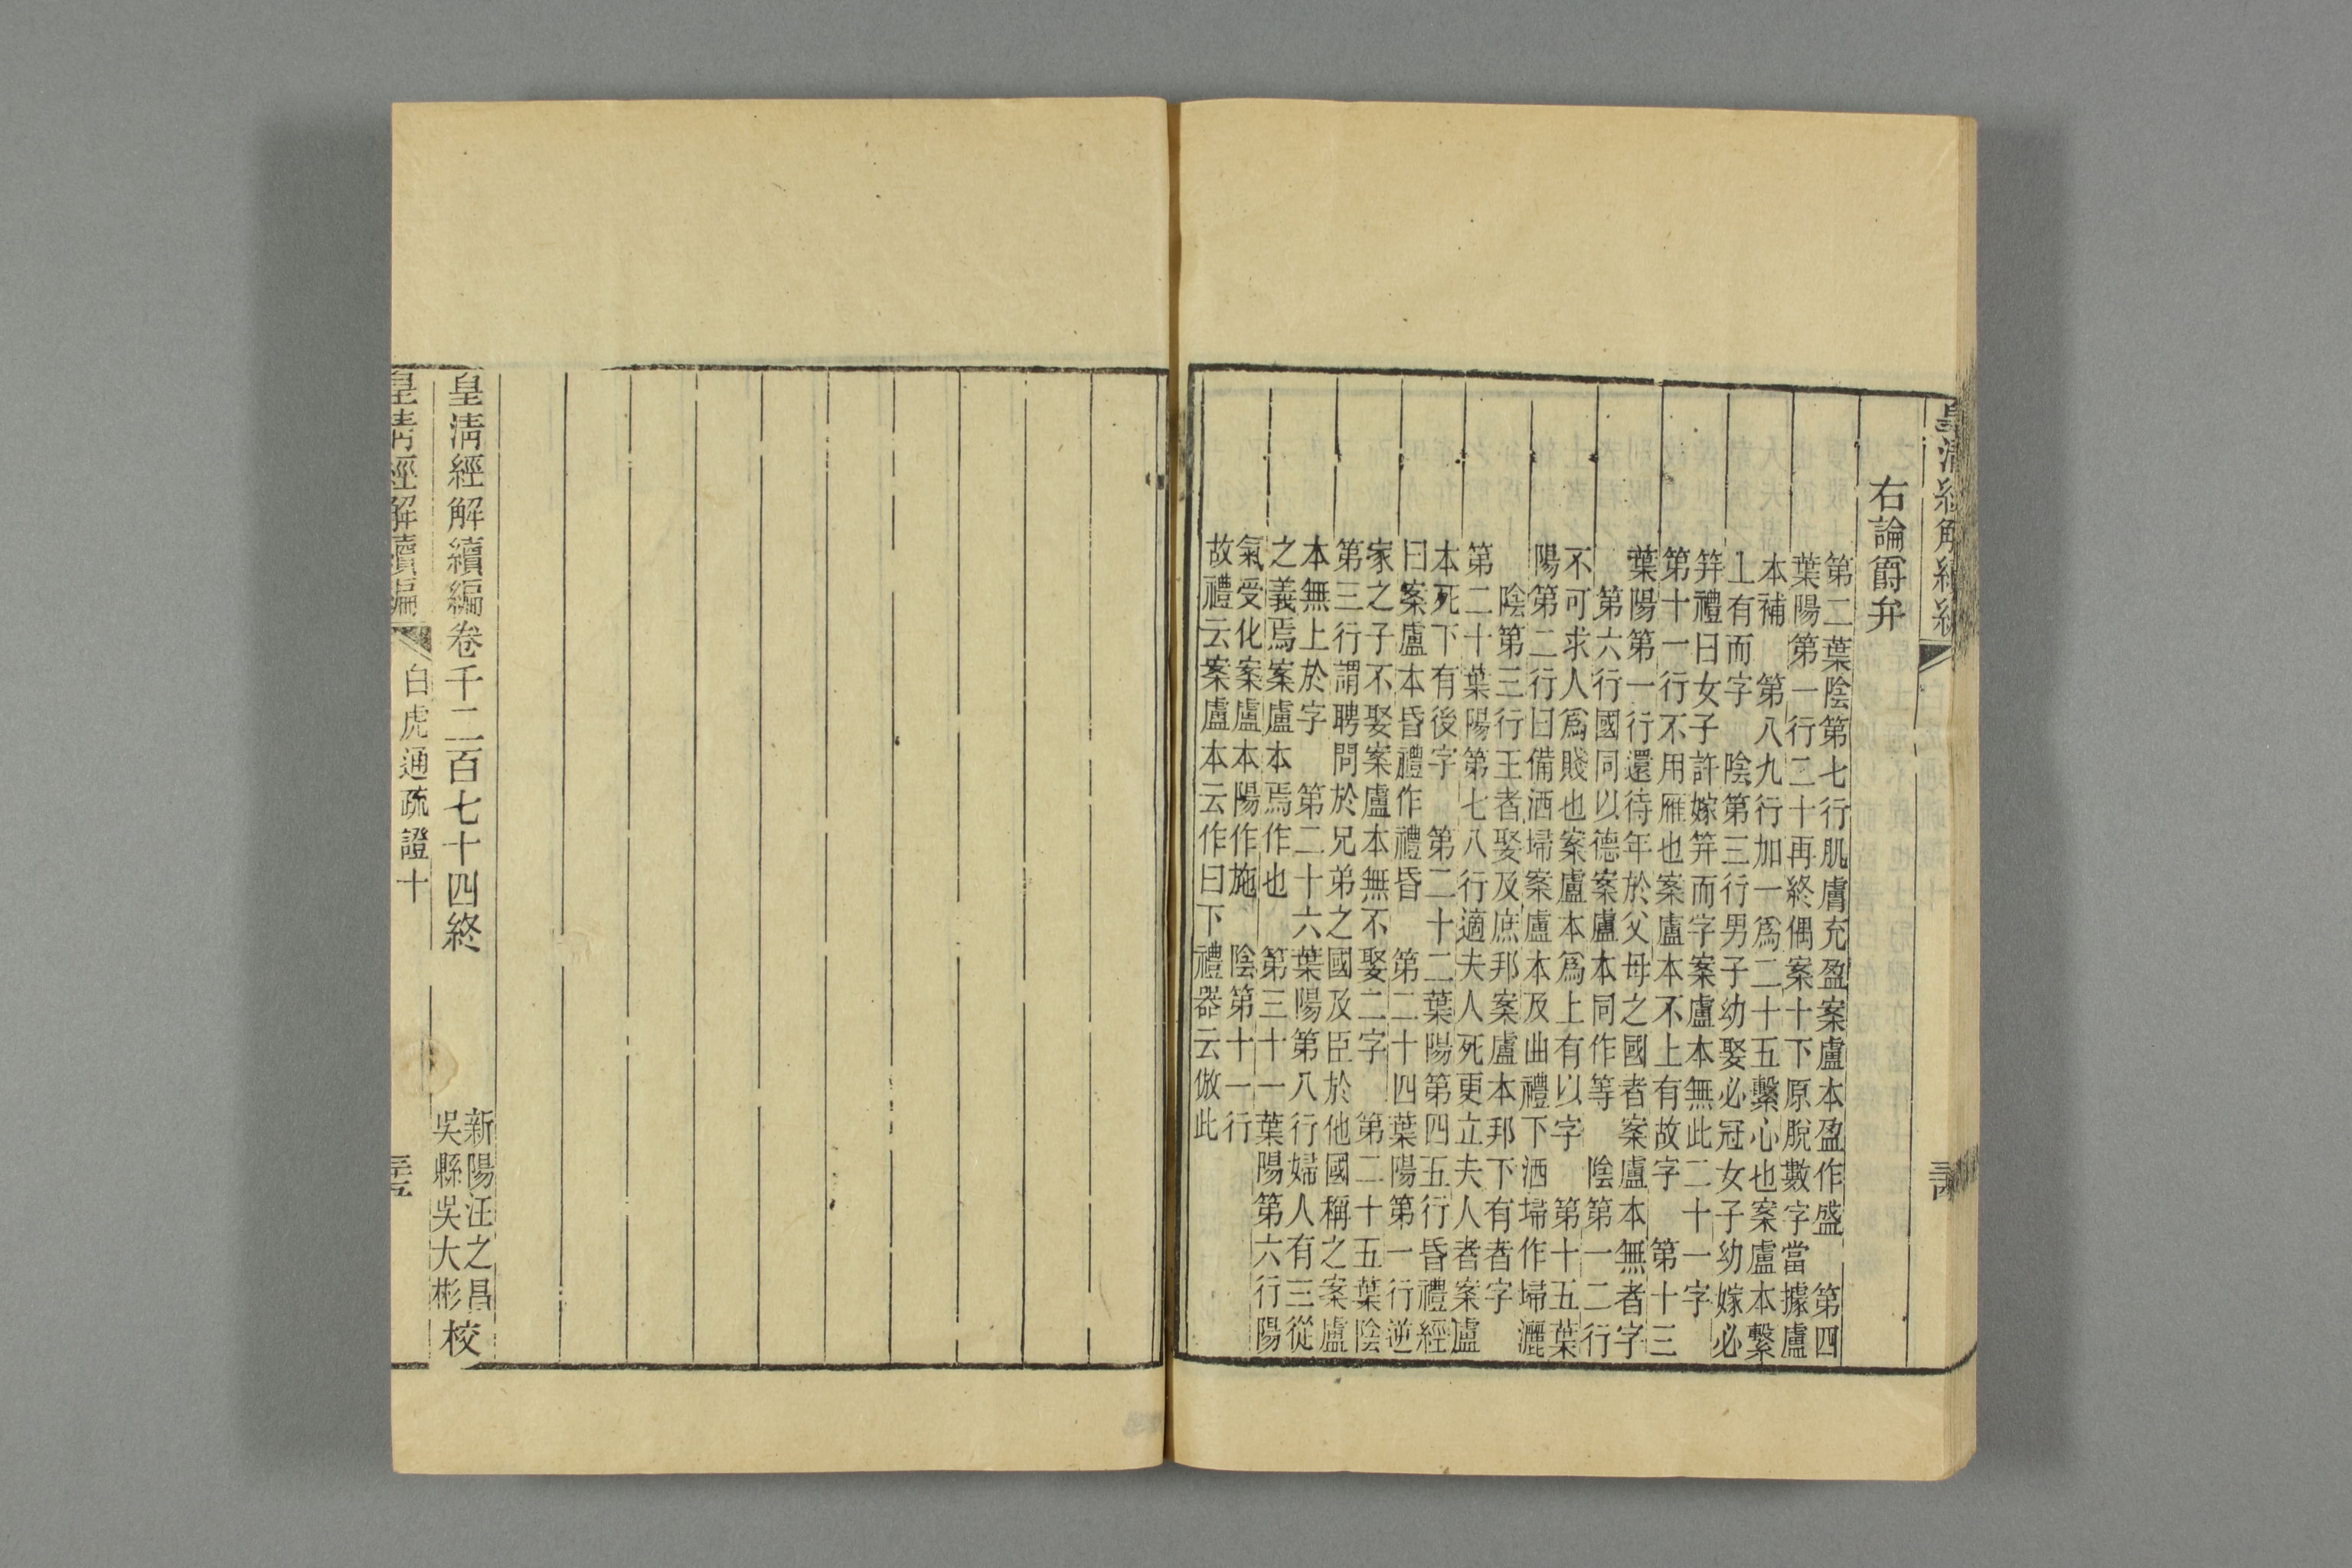 皇清經解續編
右論爵弁
第二葉陰第七行肌膚充盈案盧本盈作盛　第四
葉陽第一行二十再終偶案十下原脫數字當據盧
本補　第八九行加一爲二十五繫心也案盧本繫
上有而字　陰第三行男子幼娶必冠女子幼嫁必
笄禮曰女子許嫁笄而字案盧本無此二十一字
第十一行不用雁也案盧本不上有故字　第十三
葉陽第一行還待年於父母之國者案盧本無者字
第六行國同以德案盧本同作等　陰第一二行
不可求人爲賤也案盧本爲上有以字　第十五葉
陽第二行曰備洒埽案盧本及曲禮下洒埽作埽灑
陰第三行王者娶及庶邦案盧本邦下有者字
第二十葉陽第七八行適夫人死更立夫人者案盧
本死下有後字　第二十二葉陽第四五行昏禮經
曰案盧本昏禮作禮昏　第二十四葉陽第一行逆
家之子不娶案盧本無不娶二字　第二十五葉陰
第三行謂聘問於兄弟之國及臣於他國稱之案盧
本無上於字　第二十六葉陽第八行婦人有三從
之義焉案盧本焉作也　第三十一葉陽第六行陽
氣受化案盧本陽作施　陰第十一行
故禮云案盧本云作曰下禮器云倣此
皇清經解續編卷千二百七十四終
新陽汪之昌
吳縣吳大彬
校
皇清經解續編
白虎通疏證十
三十五